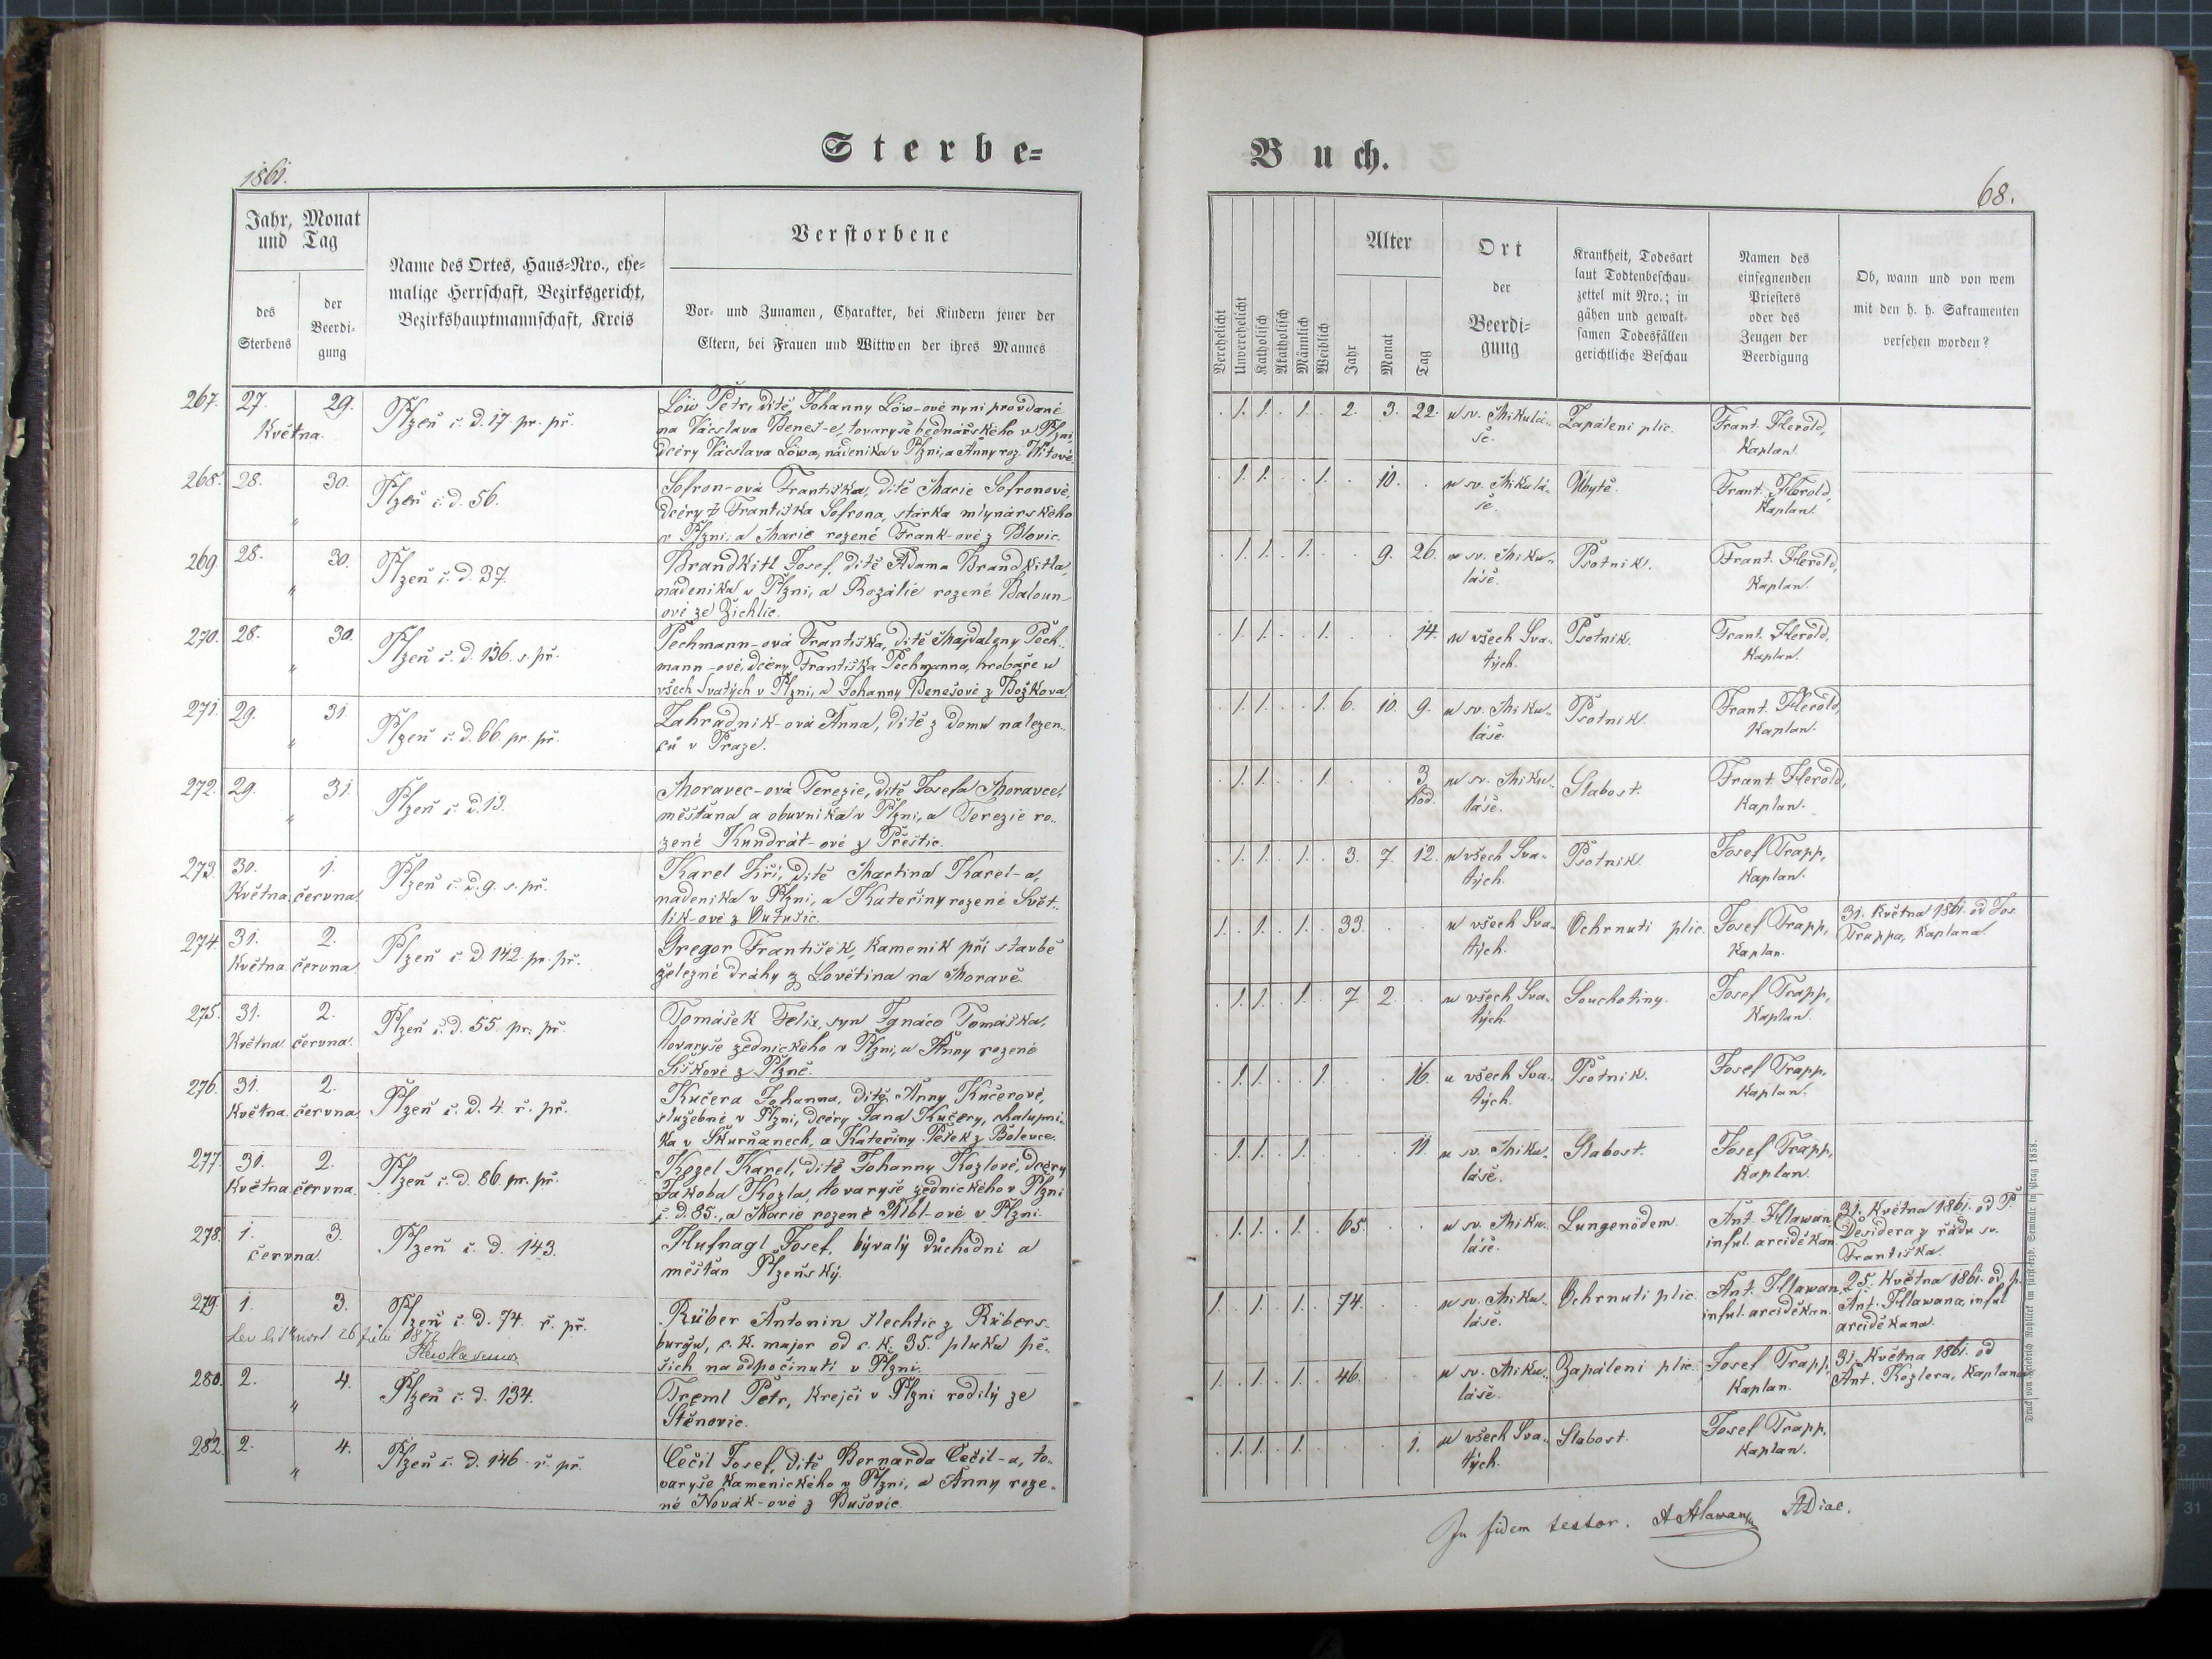 1861.
Sterbe=
Jahr, Monat
und Tag
des
Sterbens
der
Beerdi-
gung
Name des Ortes, Haus=Nro., ehe=
malige Herrschaft, Bezirksgericht,
Bezirkshauptmannschaft, Kreis
Verstorbene
Vor- und Zunamen, Charakter, bei Kindern jener der
Eltern, bei Frauen und Wittwen der ihres Mannes
267. 27. 29.
Května.
Plzeň č. d. 17. pr. př.
Löw Petr, dítě Johanny Löw-ové nyní provdané
na Václava Beneš-e, tovaryše bednářského v Plzni,
dcéry Václava Löwa, nádeníka v Plzni, a Anny roz. Vítové.
268. 28. 30.
"
Plzeň č. d. 56.
Sofron-ová Františka, dítě Marie Sofronové,
dcéry Františka Sofrona, stárka mlynářského
v Plzni, a Marie rozené Frank-ové z Blovic.
269 28. 30.
"
Plzeň č. d. 37.
Brandkitl Josef, dítě Adama Brandkitla,
nádeníka v Plzni, a Rozálie rozené Baloun-
ové ze Žichlic.
270. 28. 30.
"
Plzeň č. d. 136. s. př.
Pechmann-ová Františka, dítě Majdaleny Pech-
mann-ové, dcéry Františka Pechmanna, hrobaře u
všech Svatých v Plzni, a Johanny Benešové z Božkova.
271. 29. 31.
"
Plzeň č. d. 66. pr. př.
Zahradnik-ová Anna, dítě z domu nalezen-
ců v Praze.
272. 29. 31.
"
Plzeň č. d. 13.
Moravec-ová Terezie, dítě Josefa Moravce,
měšťana a obuvníka v Plzni, a Terezie ro-
zené Kundrát-ové z Přeštic.
273. 30. 1.
Května. června.
Plzeň č. d. 9. s. př.
Karel Jiří, dítě Martina Karel-a,
nádeníka v Plzni, a Kateřiny rozené Svět-
lik-ové z Duťušic.
274. 31. 2.
Května. června.
Plzeň č. d 142. pr. př.
Gregor František, kameník při stavbě
železné dráhy z Lovětína na Moravě.
275. 31. 2.
Května. června.
Plzeň č. d. 55. pr. př.
Tomášek Felix, syn Ignáce Tomáška,
tovaryše zednického v Plzni, a Anny rozené
Šiškové z Plzně.
276. 31. 2.
Května. června.
Plzeň č. d. 4. ř. př.
Kučera Johanna, dítě Anny Kučerové,
služebné v Plzni, dcéry Jana Kučery, chalupní-
ka v Skurňanech, a Kateřiny Pešek z Bolevce.
277. 31. 2.
Května. června.
Plzeň č. d. 86. pr. př.
Kozel Karel, dítě Johanny Kozlové, dcéry
Jakoba Kozla, tovaryše zednického v Plzni
č. d. 85., a Marie rozené Albl-ové v Plzni.
278. 1. 3.
června.
Plzeň č. d. 143.
Hufnagl Josef, bývalý důchodní a
měšťan Plzeňský.
279. 1. 3.
Plzeň č. d. 74. ř. př.
26 Juli 1877
Rüber Antonin šlechtic z Rübers-
burgu, c. k. major od c. k. 35. pluku pě-
ších na odpočinutí v Plzni.
280. 2. 4.
"
Plzeň č. d. 134.
Treml Petr, krejčí v Plzni rodilý ze
Štěnovic.
282. 2. 4.
"
Plzeň č. d. 146. ř. př.
Cečil Josef, dítě Bernarda Cečil-a, to-
varyše kamenického v Plzni, a Anny roze-
né Novák-ové z Bušovic.
Buch.
68.
Verehelicht
Unverehelicht
Katholisch
Akatholisch
Männlich
Weiblich
Alter
Jahr
Monat
Tag
Ort
der
Beerdi=
gung
Krankheit, Todesart
laut Todtenbeschau-
zettel mit Nro.; in
gähen und gewalt-
samen Todesfällen
gerichtliche Beschau
Namen des
einsegnenden
Priesters
oder des
Zeugen der
Beerdigung
Ob, wann und von wem
mit den h. h. Sakramenten
versehen worden?
. 1. 1. . 1. . 2. 3. 22. u sv. Mikulá- Zapálení plic. Frant. Herold,
še. Kaplan.
. 1. 1. . . 1. . 10. . u sv. Mikulá- Úbytě. Frant. Herold,
še. Kaplan.
. 1. 1. . 1. . . 9. 26. u sv. Miku- Psotník. Frant. Herold,
láše. Kaplan.
. 1. 1. . . 1. . . 14. u všech Sva- Psotník. Frant. Herold,
tých. Kaplan.
. 1. 1. . . 1. 6. 10. 9. u sv. Miku- Psotník. Frant. Herold,
láše. Kaplan.
. 1. 1. . . 1. . . 3 u sv. Miku- Slabost. Frant. Herold,
hod. láše. Kaplan.
. 1. 1. . 1. . 3. 7. 12. u všech Sva- Psotník. Josef Trapp,
tých. Kaplan.
1. . 1. . 1. . 33. . . u všech Sva- Ochrnutí plic. Josef Trapp, 31. Května 1861. od Jos.
tých. Kaplan. Trappa, Kaplana.
. 1. 1. . 1. . 7 2. . u všech Sva- Souchotiny. Josef Trapp,
tých. Kaplan.
. 1. 1. . . 1. . . 16. u všech Sva- Psotník. Josef Trapp,
tých. Kaplan.
. 1. 1. . 1. . . . 11. u sv. Miku- Slabost. Josef Trapp,
láše. Kaplan.
. 1. 1. . 1. . 65. . . u sv. Miku- Lungenödem. Ant. Hlawan, 31. Května 1861. od P.
láše. inful. arciděkan. Desidera z řádu sv.
Františka.
1. . 1. . 1. . 74. . . u sv. Miku- Ochrnutí plic. Ant. Hlawan, 25. Května 1861. od p.
láše. inful. arciděkan. Ant. Hlawana, inful
arciděkana.
1. . 1. . 1. . 46. . . u sv. Miku- Zapálení plic. Josef Trapp, 31. Května 1861. od
láše. Kaplan. Ant. Kozlera, Kaplana
. 1. 1. . 1. . . . 1. u všech Sva- Slabost. Josef Trapp,
tých. Kaplan.
In fidem testor. A Hlawan ADiac.